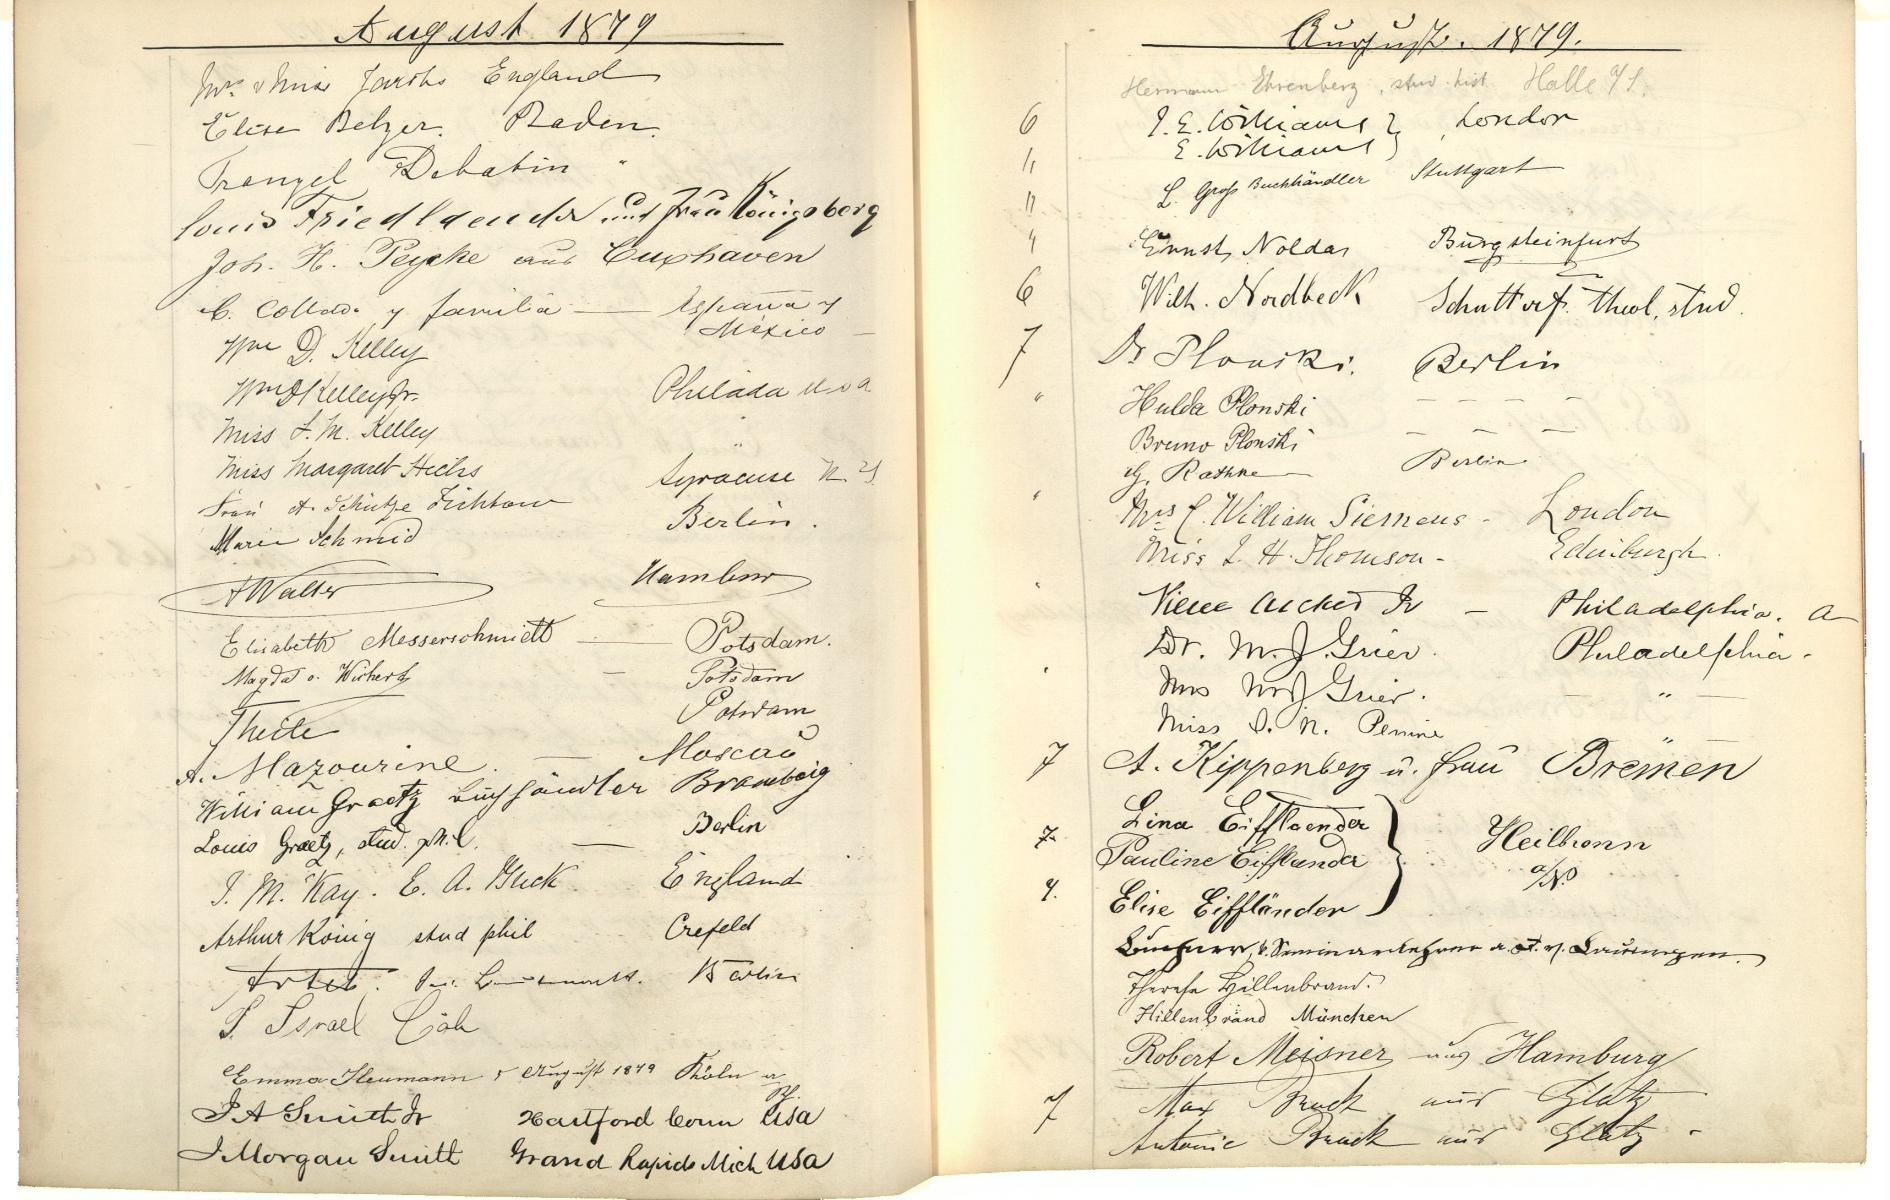 August 1879
Mr & Miss Jacobs England
Elise Belzer. Baden.
Debatin "
Louis Friedlaender und Frau Königsberg
Joh. H. Peycke aus Cuxhaven
C. Collado y familia — España y
México —
Wm D. Kelley
Wm D Kelley Jr. Philada U S A
Miss F. M. Kelley "
Miss Margaret Hicks Syracuse N. Y.
Frau A. Schütze
Marie Schmid Berlin.
A Walter Hamburg
Elisabeth Messerschmidt — Potsdam.
Magda v. Wichert — Potsdam
Theile Potsdam
A. Mazourine. — Moscau
William Graetz Buchhändler Bromberg
Louis Graetz, stud. phil. — Berlin
J. M. Kay. E. A. Gluck England
Arthur König stud phil Crefeld
Berlin
S. Israel Cöln
Emma Neumann August 1879 Köln a/
Rh.
J A Smith Jr Hartford Conn USA
J Morgan Smith Grand Rapids Mich USA
August. 1879.
Hermann Ehrenberg, stud. hist. Halle a/S.
6 J. E. Williams } London
" E. Williams
" L. Groß Buchhändler Stuttgart
" Ernst Noldas Burgsteinfurt
6 Wilh. Nordbeck Schüttorf. theol. stud.
7 Dr Plonski. Berlin
" Hulda Plonski — — — —
Bruno Plonski — — —
G. Rathke Berlin
" Mrs C. William Siemens - London
Miss J. H. Thomson - Edinburgh.
" Jr — Philadelphia. A
Dr. M. J. Grier. Philadelphia.
" Mrs M J Grier. — " —
Miss S. N. "
7 A. Kippenberg u. Frau Bremen
Lina Eifflaender
7. Pauline Eifflaender } Heilbronn
a/N.
7. Elise Eiffländer
k. Seminarlehrer a. D. v. Lauingen.
Therese Hillenbrand.
Hillenbrand München
Robert Meisner aus Hamburg
7 Max Bruck aus Glatz
Antonie Bruck aus Glatz